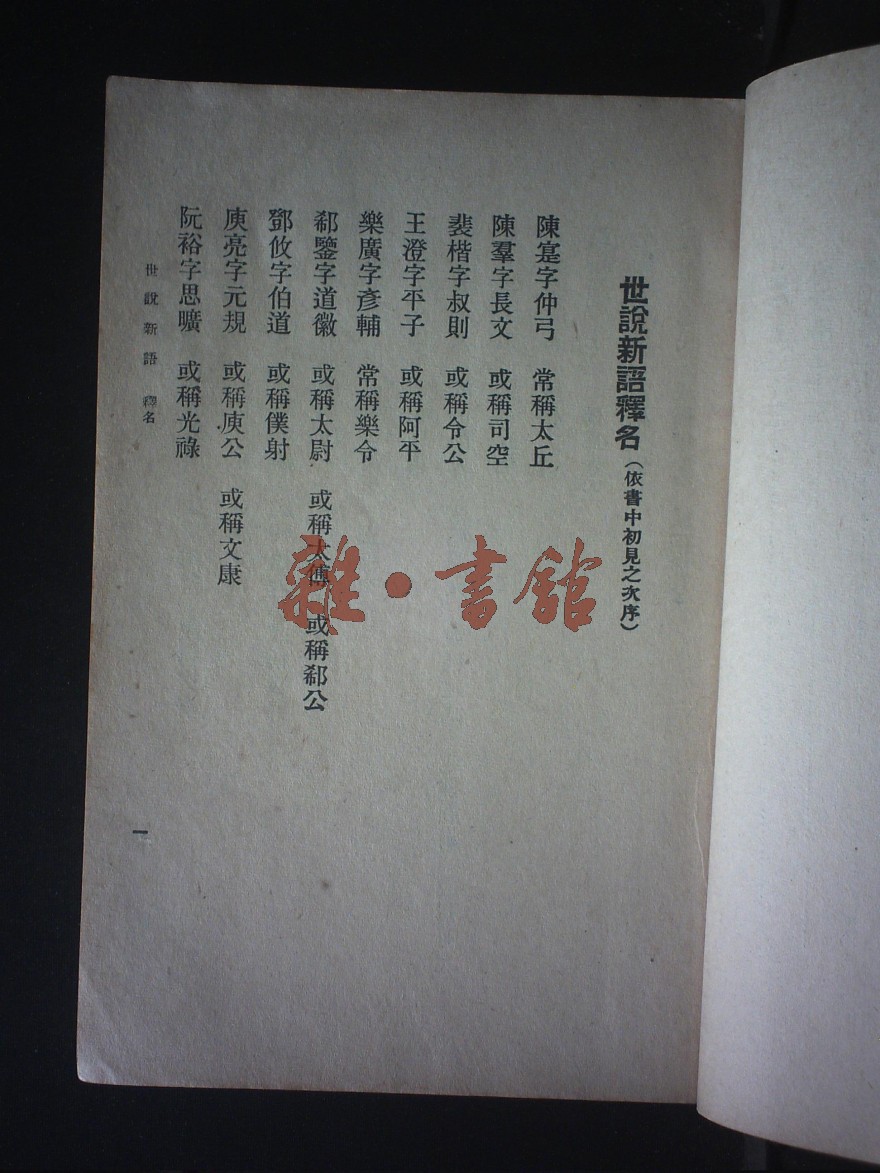 世說新語釋名（依書中初見之次序）
陳寔字仲弓　常稱太丘
陳羣字長文　或稱司空
裴楷字叔則　或稱令公
王澄字平子　或稱阿平
樂廣字彥輔　常稱樂令
郗鑒字道徽　或稱太尉　或稱太傅　或稱郗公
鄧攸字伯道　或稱僕射
庾亮字元規　或稱庾公　或稱文康
阮裕字思曠　或稱光祿
世說新語　釋名
一
雜·書館